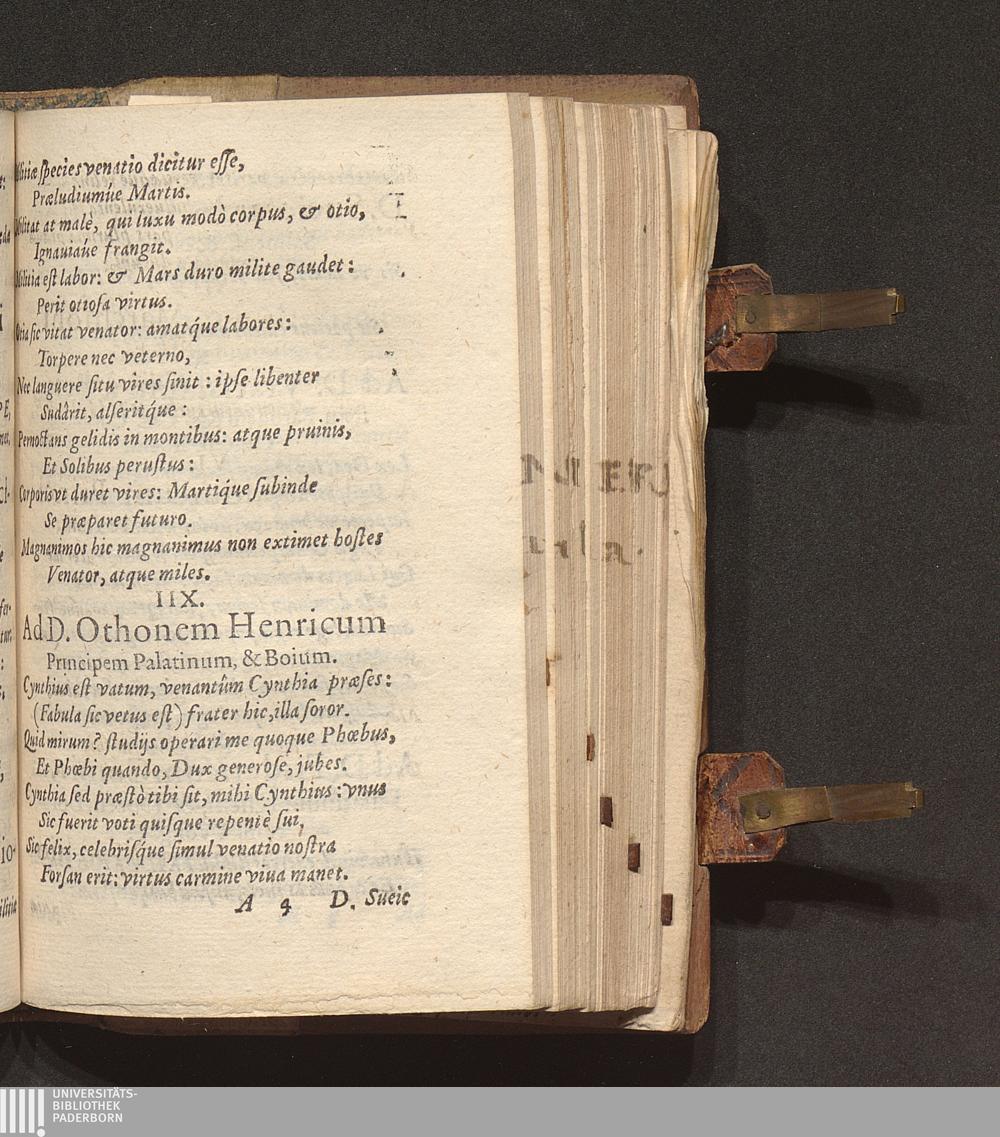 Militiæ species venatio dicitur esse,
Præludiumúe Martis.
Militat at malè, qui luxu modò corpus, & otio,
Ignauiaúe frangit.
Militia est labor: & Mars duro milite gaudet:
Perit otiosa virtus.
Otia sic vitat venator: amatq́ue labores:
Torpere nec veterno,
Nec languere situ vires sinit: ipse libenter
Sudârit, alseritq́ue:
Pernoctans gelidis in montibus: atque pruinis,
Et Solibus perustus:
Corporis vt duret vires: Martiq́ue subinde
Se præparet futuro.
Magnanimos hic magnanimus non extimet hostes
Venator, atque miles.
IIX.
Ad D. Othonem Henricum
Principem Palatinum, & Boium.
Cynthius est vatum, venantûm Cynthia præses:
(Fabula sic vetus est) frater hic, illa soror.
Quid mirum? studijs operari me quoque Phœbus,
Et Phœbi quando, Dux generose, jubes.
Cynthia sed præstò tibi sit, mihi Cynthius: vnus
Sic fuerit voti quisque repentè sui,
Sic felix, celebrisq́ue simul venatio nostra
Forsan erit: virtus carmine viua manet.
A 4 D. Sueic
UNIVERSITÄTS-
BIBLIOTHEK
PADERBORN